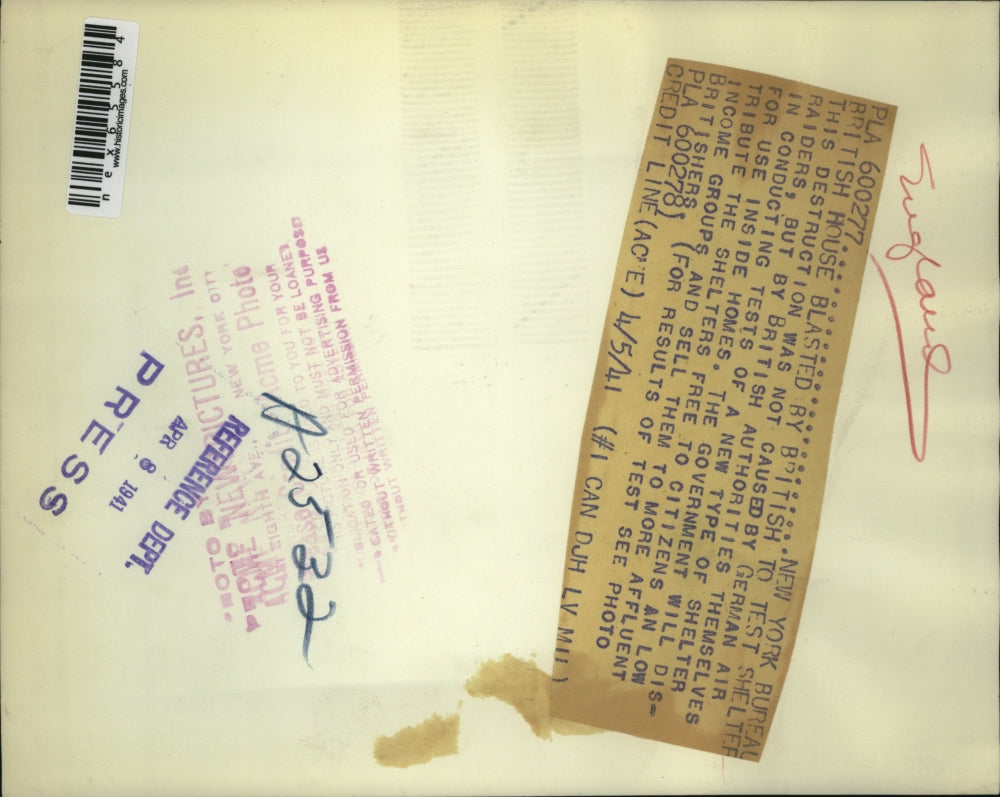 PLA 600277...............NEW YORK BUREAU
BRITISH HOUSE BLASTED BY BRITISH TO TEST SHELTER
THIS DESTRUCTION WAS NOT CAUSED BY GERMAN AIR
RAIDERS, BUT BY BRITISH AUTHORITIES THEMSELVES
IN CONDUCTING TESTS OF A NEW TYPE OF SHELTER
FOR USE INSIDE HOMES. THE GOVERNMENT WILL DIS-
TRIBUTE THE SHELTERS FREE TO CITIZENS AN LOW
INCOME GROUPS AND SELL THEM TO MORE AFFLUENT
BRITISHERS. (FOR RESULTS OF TEST SEE PHOTO
PLA 600278)
CREDIT LINE (ACME) 4/5/41 (#1 CAN DJH LV MIL)
England
nex65584
www.historicimages.com
PRESS
APR 8 1941
REFERENCE DEPT.
A25532
ACME NEW PICTURES, Inc
EIGHTH AVE., NEW YORK CITY
Acme Photo
TO YOU FOR YOUR
MUST NOT BE LOANED
OR USED FOR ADVERTISING PURPOSE
WITHOUT WRITTEN PERMISSION FROM US